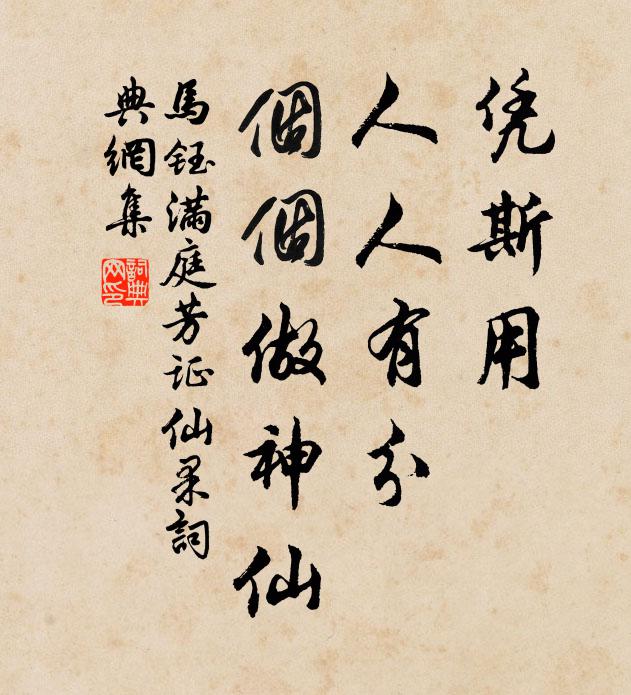 凭斯用
人人有分
個個做神仙
馬鈺滿庭芳证仙果詞
典網集
詞典网印